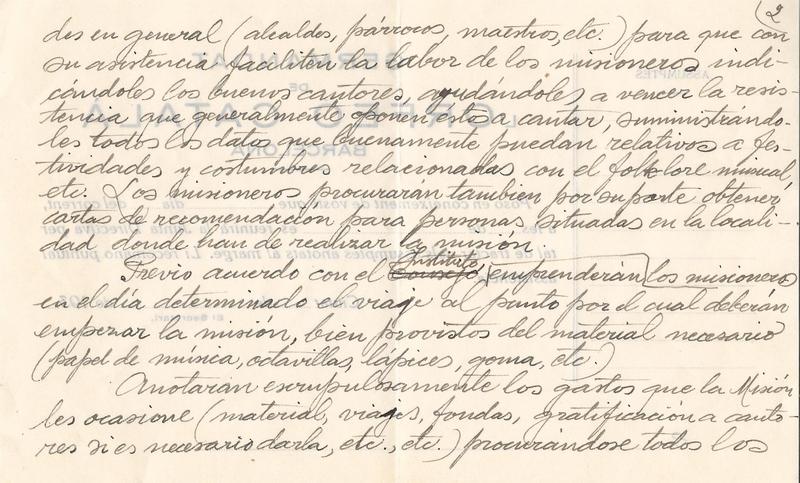 2
des en general (alcaldes, párrocos, maestros, etc.) para que con
su asistencia faciliten la labor de los misioneros indi-
cándoles los buenos cantores, ayudándoles a vencer la resis-
tencia que generalmente oponen éstos a cantar, suministrándo-
les todos los datos que buenamente puedan relativos a fes-
tividades y costumbres relacionadas con el folklore musical,
etc. Los misioneros procuraran tambien por su parte obtener
cartas de recomendación para personas situadas en la locali-
dad donde han de realizar la misión.
Instituto
Previo acuerdo con el Consejo, emprenderán los misioneros
en el día determinado el viaje al punto por el cual deberán
empezar la misión, bien provistos del material necesario
(papel de música, octavillas, lápices, goma, etc.)
Anotarán escrupulosamente los gastos que la Misión
les ocasione (material, viajes, fondas, gratificación a canto-
res si es necesario darla, etc., etc.) procurándose todos los